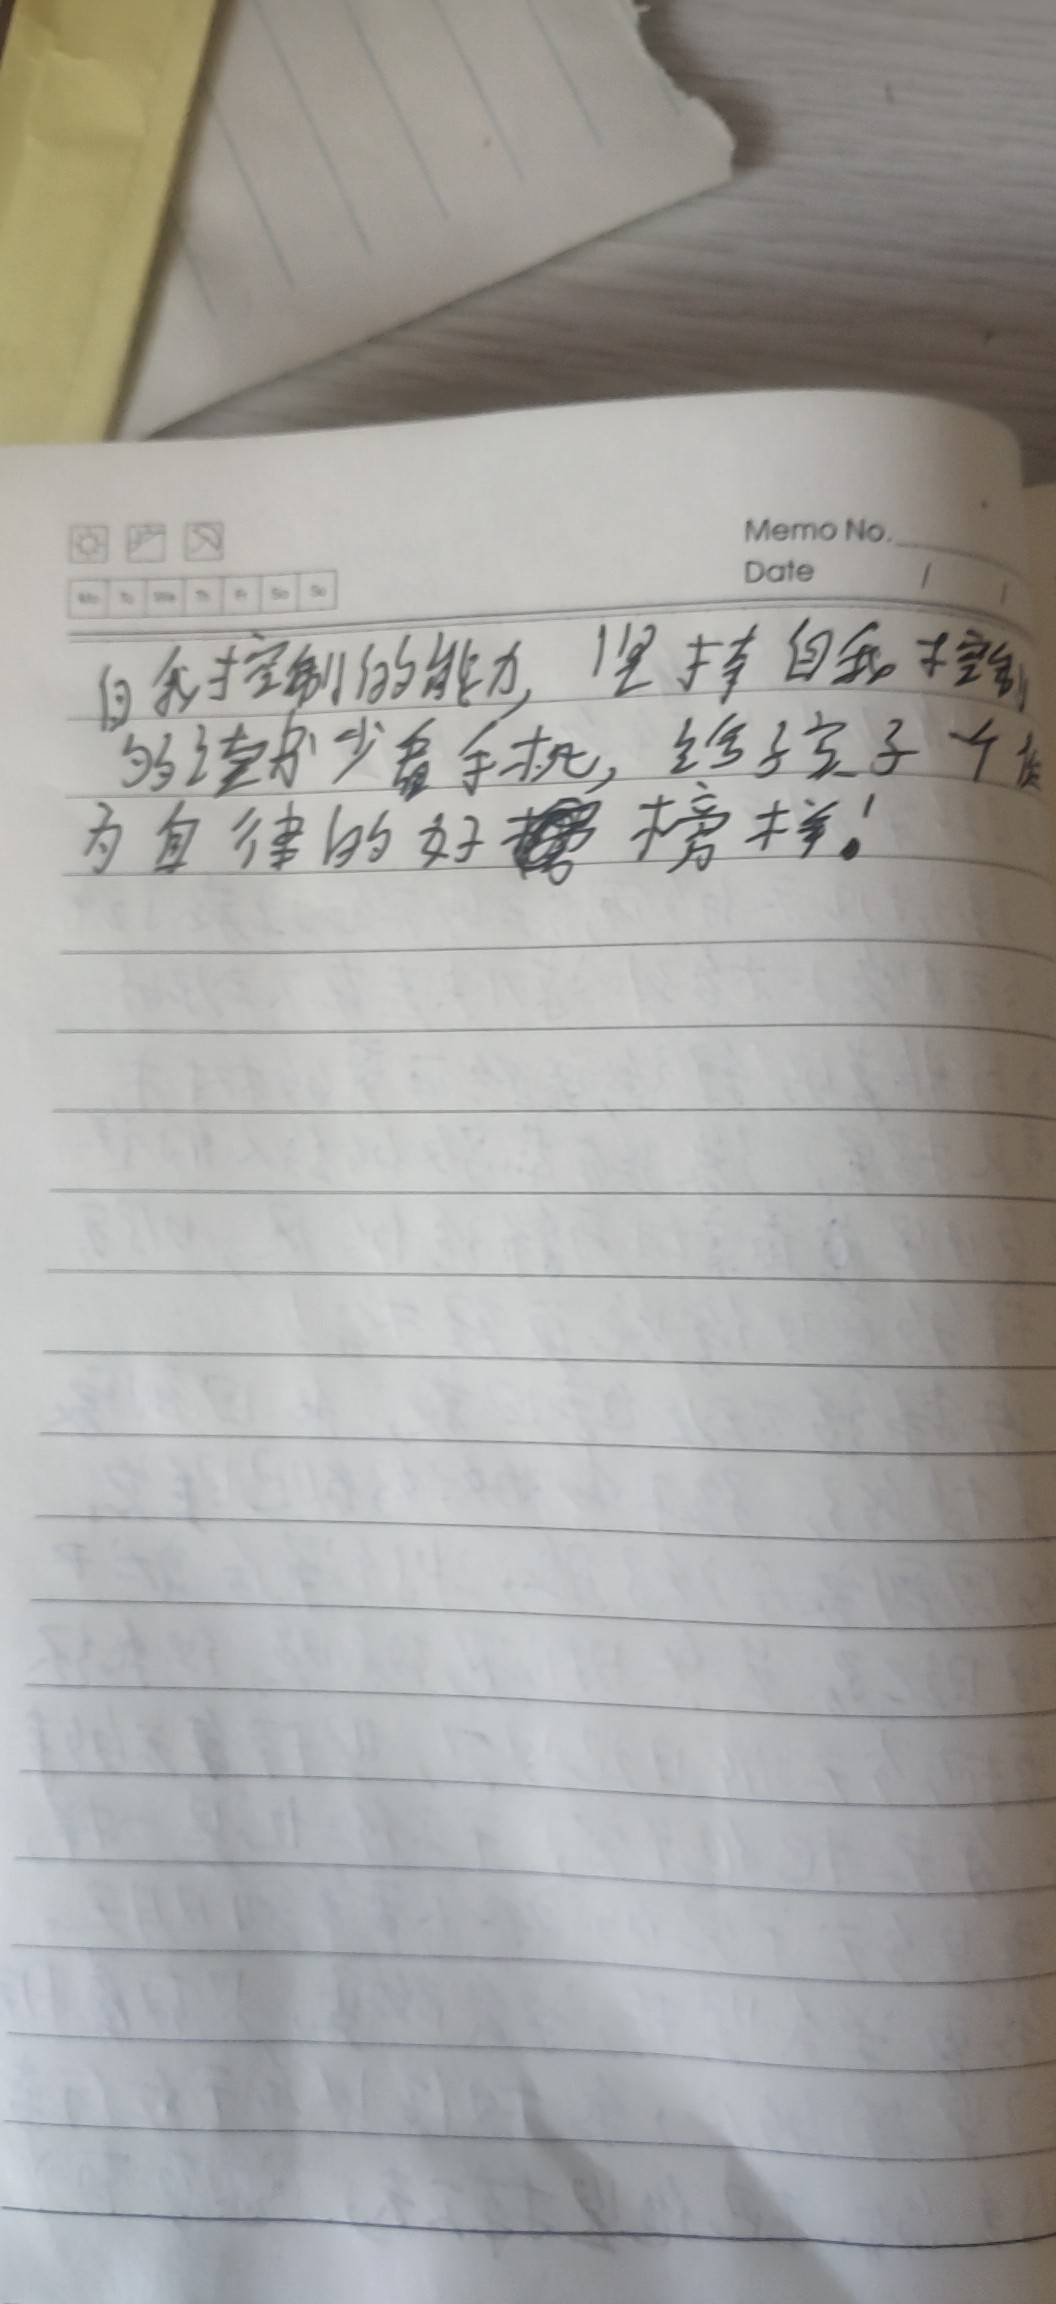 Memo No.
Date / /
Mo Tu We Th Fr Sa Su
自我控制的能力, 坚持自我控制
的 少看手机, 给孩子 个 
为自律的好 榜样!